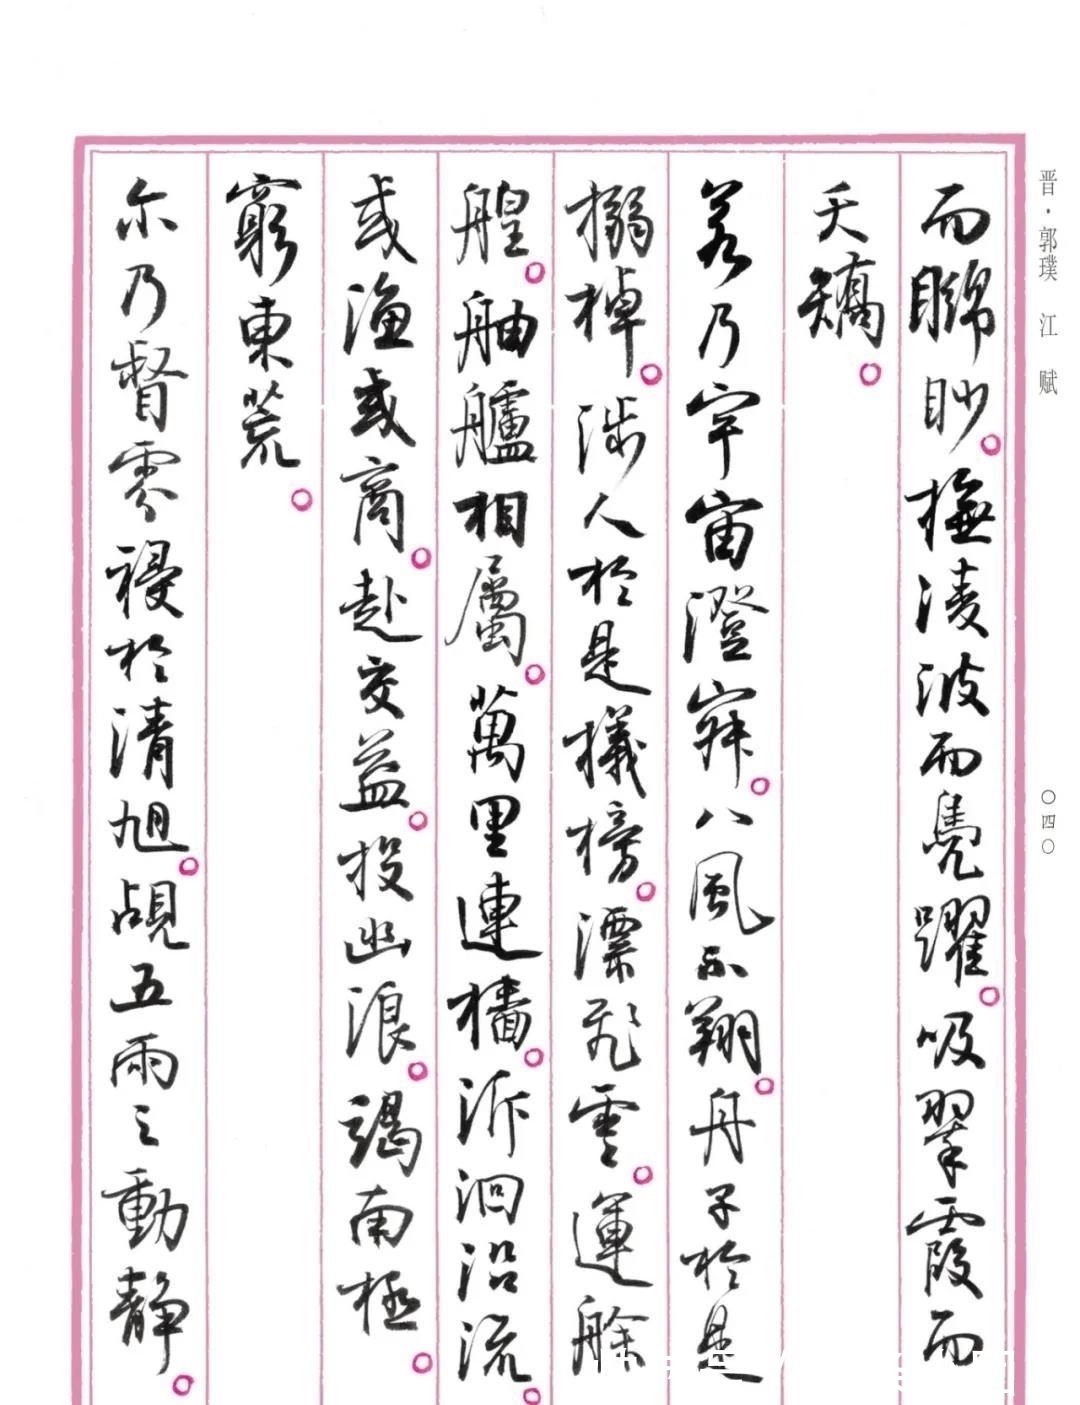 晋·郭璞 江 赋
〇四〇
而矊眇。撫淩波而鳧躍。吸翠霞而
夭矯。
若乃宇宙澄寂。八風不翔。舟子於是
搦棹。涉人於是檥榜。漂飛雲。運艅
艎。舳艫相屬。萬里連檣。泝洄沿流。
或漁或商。赴交益。投幽浪。竭南極。
窮東荒。
尓乃督雰祲於清旭。覘五雨之動靜。